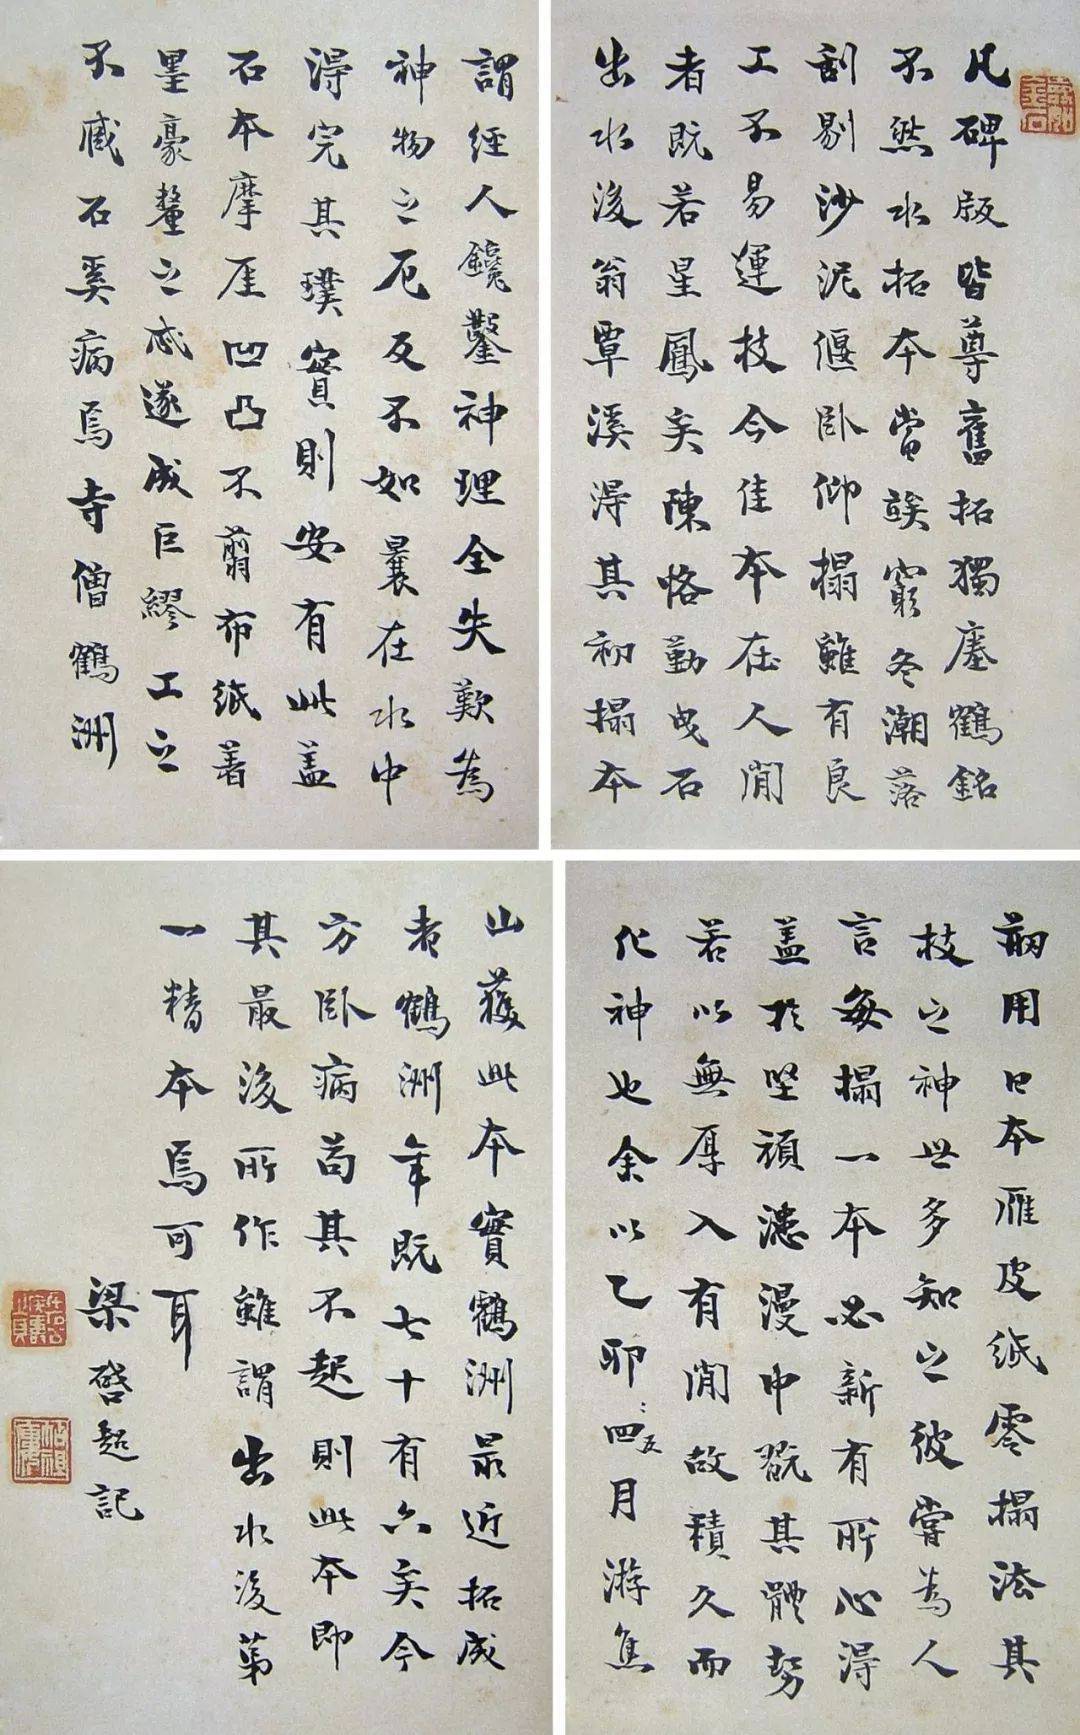 凡碑版皆尊舊拓獨瘞鶴銘
不然水拓本當竢窮冬潮落
刮剔沙泥偃卧仰搨雖有良
工不易運技今佳本在人閒
者既若星鳳矣陳恪勤曳石
出水後翁覃溪得其初搨本
謂經人鑱鑿神理全失歎為
神物之厄反不如曩在水中
得完其璞實則安有此盖
石本摩厓凹凸不翦布紙著
墨豪釐之忒遂成巨繆工之
不臧石奚病焉寺僧鶴洲
剏用日本雁皮紙零搨法其
技之神世多知之彼嘗為人
言每搨一本必新有所心得
盖於堅頑漶漫中翫其體勢
若以無厚入有閒故積久而
化神也余以乙卯四五月游焦
山獲此本實鶴洲最近拓成
者鶴洲年既七十有六矣今
方卧病苟其不起則此本即
其最後所作雖謂出水後第
一精本焉可耳
梁啓超記